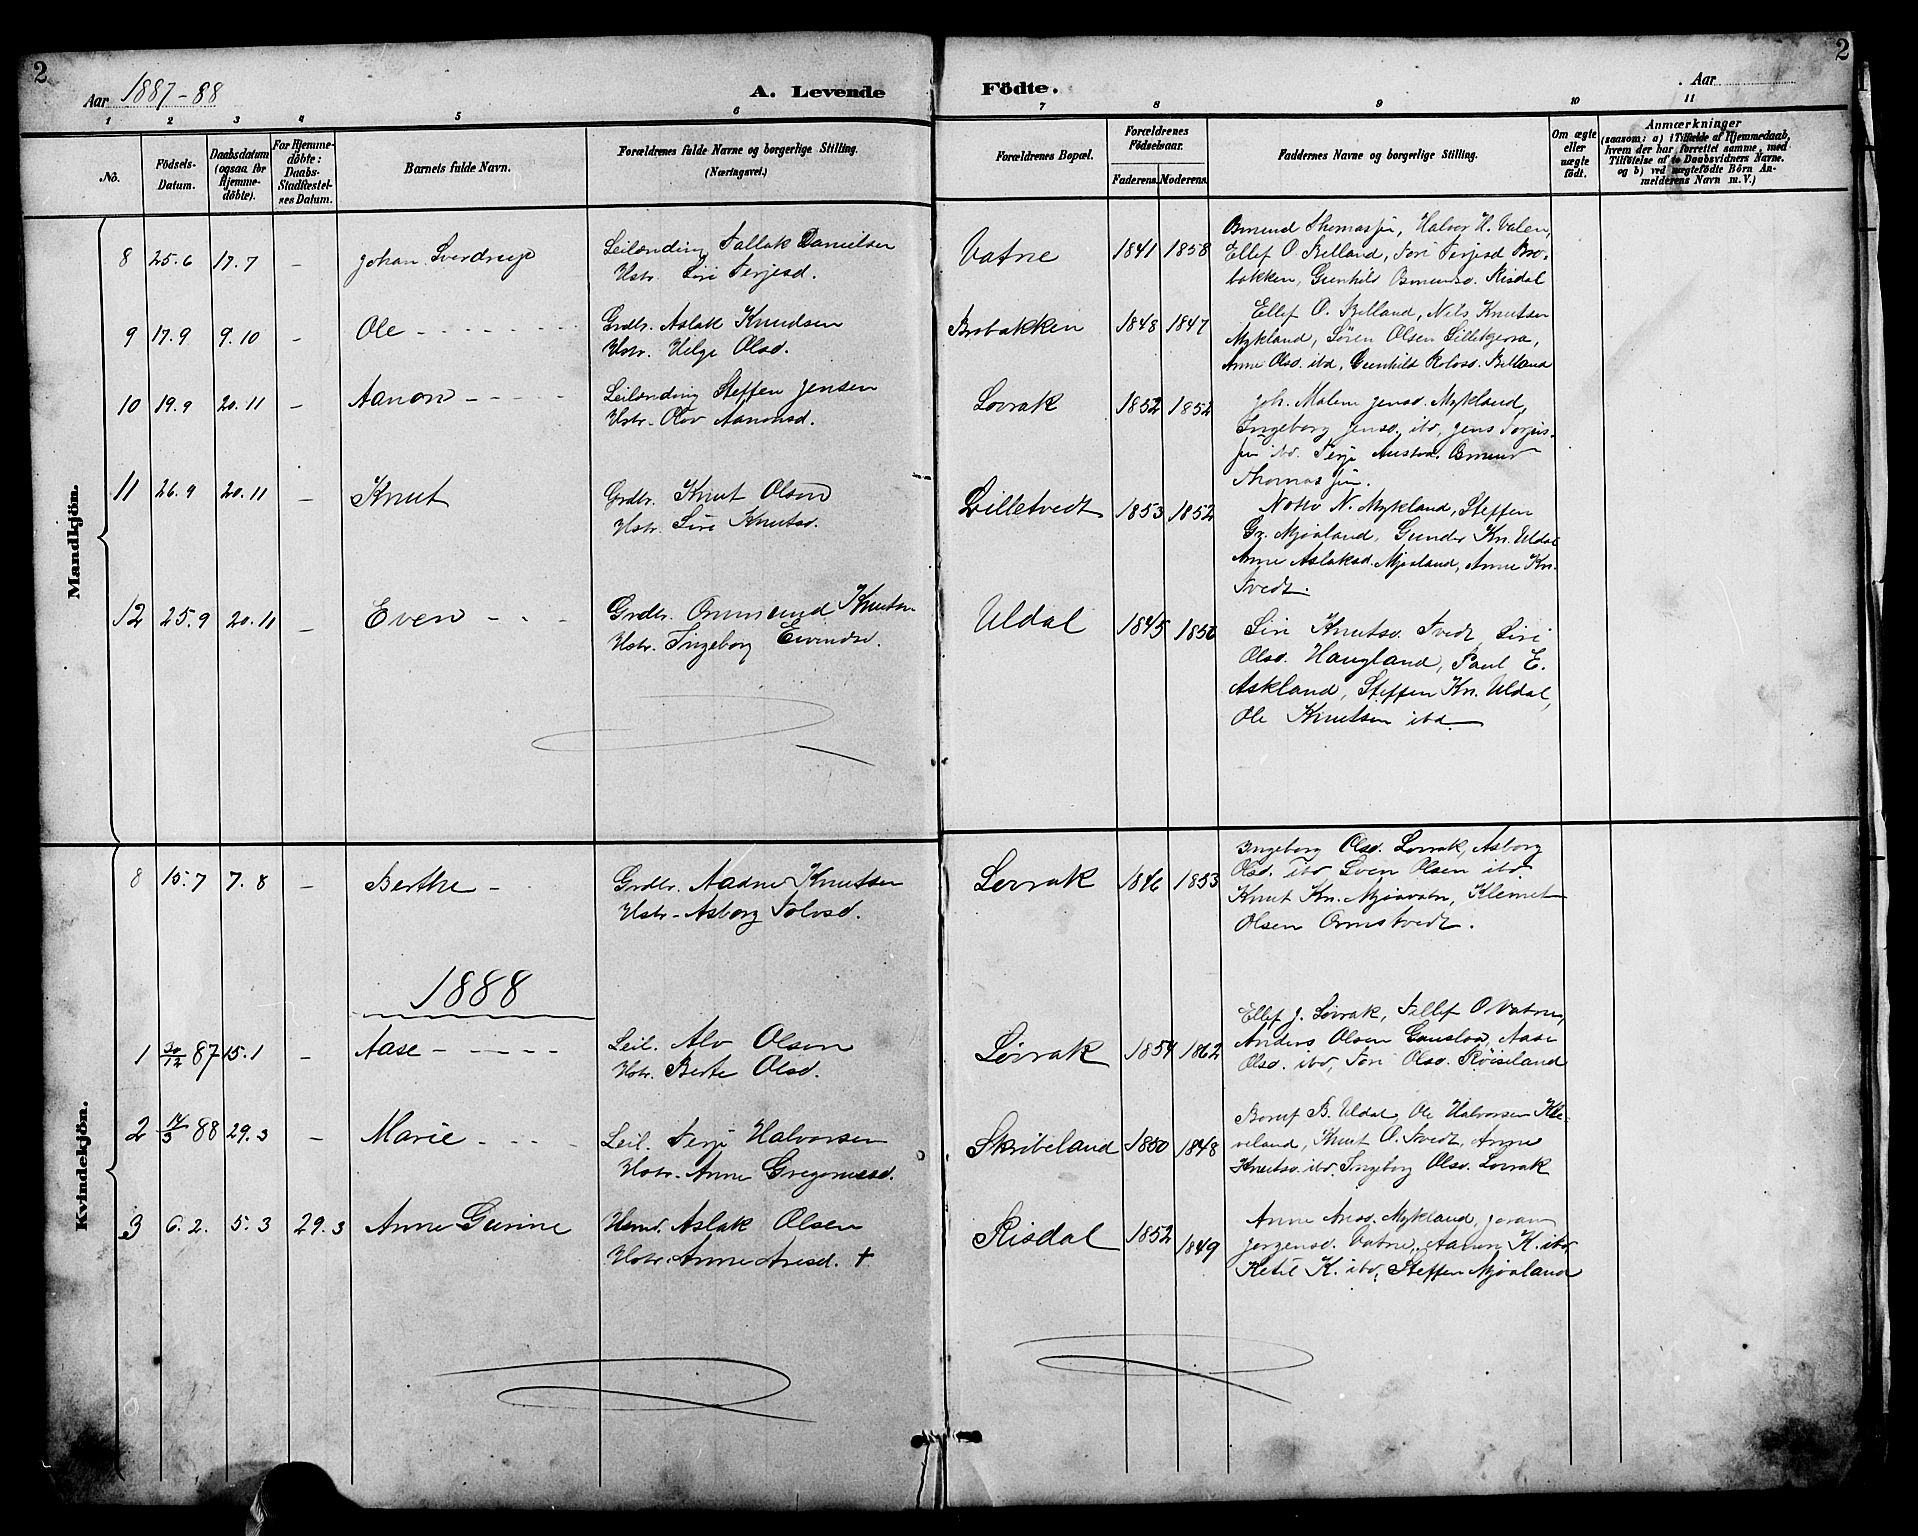 2
Aar 1887-88
A. Levende Födte.
Aar
2
1 2 3 4 5 6 7 8 9 10 11
No.
Födsels-Datum.
Daabsdatum (ogsaa for Hjemmedöbte).
For Hjemmedöbte: Daabs-Stadfæstelses Datum.
Barnets fulde Navn.
Forældrenes fulde Navne og borgerlige Stilling.
(Næringsvei.)
Forældrenes Bopæl.
Forældrenes Födselsaar.
Faderens. Moderens.
Faddernes Navne og borgerlige Stilling.
Om ægte eller uægte födt.
Anmærkninger
(saasom: a) i Tilfælde af Hjemmedaab,
hvem der har forrettet samme, med
Tilföielse af to Daabsvidners Navne.
og b) ved uægtefödte Börn An-
melderens Navn m. V.)
Mandkjön.
8 25.6 17.7 - Johan Sverdrup
Leilænding Tallak Danielsen
Hstr. Siri Terjesd.
Vatne 1841 1858
Osmund Thomassen, Halvor H. Valen,
Ellef O. Belland, Tori Terjesd. Bro-
bakken, Gunhild Osmundsd. Risdal
9 17.9 9.10 - Ole
Grdbr. Aslak Knudsen
Hstr. Helge Olsd.
Brobakken 1848 1847
Ellef O. Belland, Nils Knutsen
Mykland, Søren Olsen
Anne Olsd. ibd, Gunhild Rolvsd. Belland
10 19.9 20.11 - Aanon
Leilænding Steffen Jensen
Hstr. Olov Aanonsd.
Lovrak 1852 1852
Joh. Malene Jensd. Mykland,
Ingeborg Jensd. ibd, Jens Terjus-
sen ibd. Terje Osmund
Thomassen.
11 26.9 20.11 - Knut
Grdbr. Knut Olsen
Hstr. Siri Knutsd.
Lilletvedt 1853 1852
Notto N. Mykland, Steffen
Gr. Mjaaland, Gunder Kn. Uldal
Anne Aslaksd. Mjaaland, Anne Kn.
Tvedt.
12 25.9 20.11 - Even
Grdbr. Ommund Knutsen
Hstr. Ingeborg Eivindsd.
Uldal 1845 1850
Siri Knutsd. Tvedt, Siri
Olsd. Haugland, Paul E.
Askland, Steffen Kn. Uldal,
Ole Knutsen ibd
Kvindekjön.
8 15.7 7.8 - Berthe
Grdbr. Aadne Knutsen
Hstr. Asborg Tolvsd.
Lovrak 1846 1853
Ingeborg Olsd. Lovrak, Asborg
Olsd. ibd Sven Olsen ibd.
Knut Kn. Mjaavatn, Klemet
Olsen Ormstvedt.
1888
1 30/12 87 15.1 - Aase
Leil. Alv Olsen
Hstr. Berte Olsd.
Løvrak 1854 1862
Ellef J. Løvrak, Tallef O Vatne,
Anders Olsen Gauslaa, Aase
Olsd. ibd, Tori Olsd. Røiseland
2 14/3 88 29.3 - Marie
Leil. Terje Halvorsen
Hstr. Anne Gregoriusd.
Skribeland 1850 1848
B. Uldal, Ole Halvorsen Kle-
veland, Knut O. Tvedt, Anne
Knutsd. ibd. Ingeborg Olsd. Lovrak
3 6.2. 5.3 29.3 Anne Gurine
Hsmd. Aslak Olsen
Hstr. Anne Aresd. +
Risdal 1852 1849
Anne Aresd. Mykland, Joran
Jorgensd. Vatne, Aanon K. ibd,
Ketil K. ibd, Steffen Mjaaland